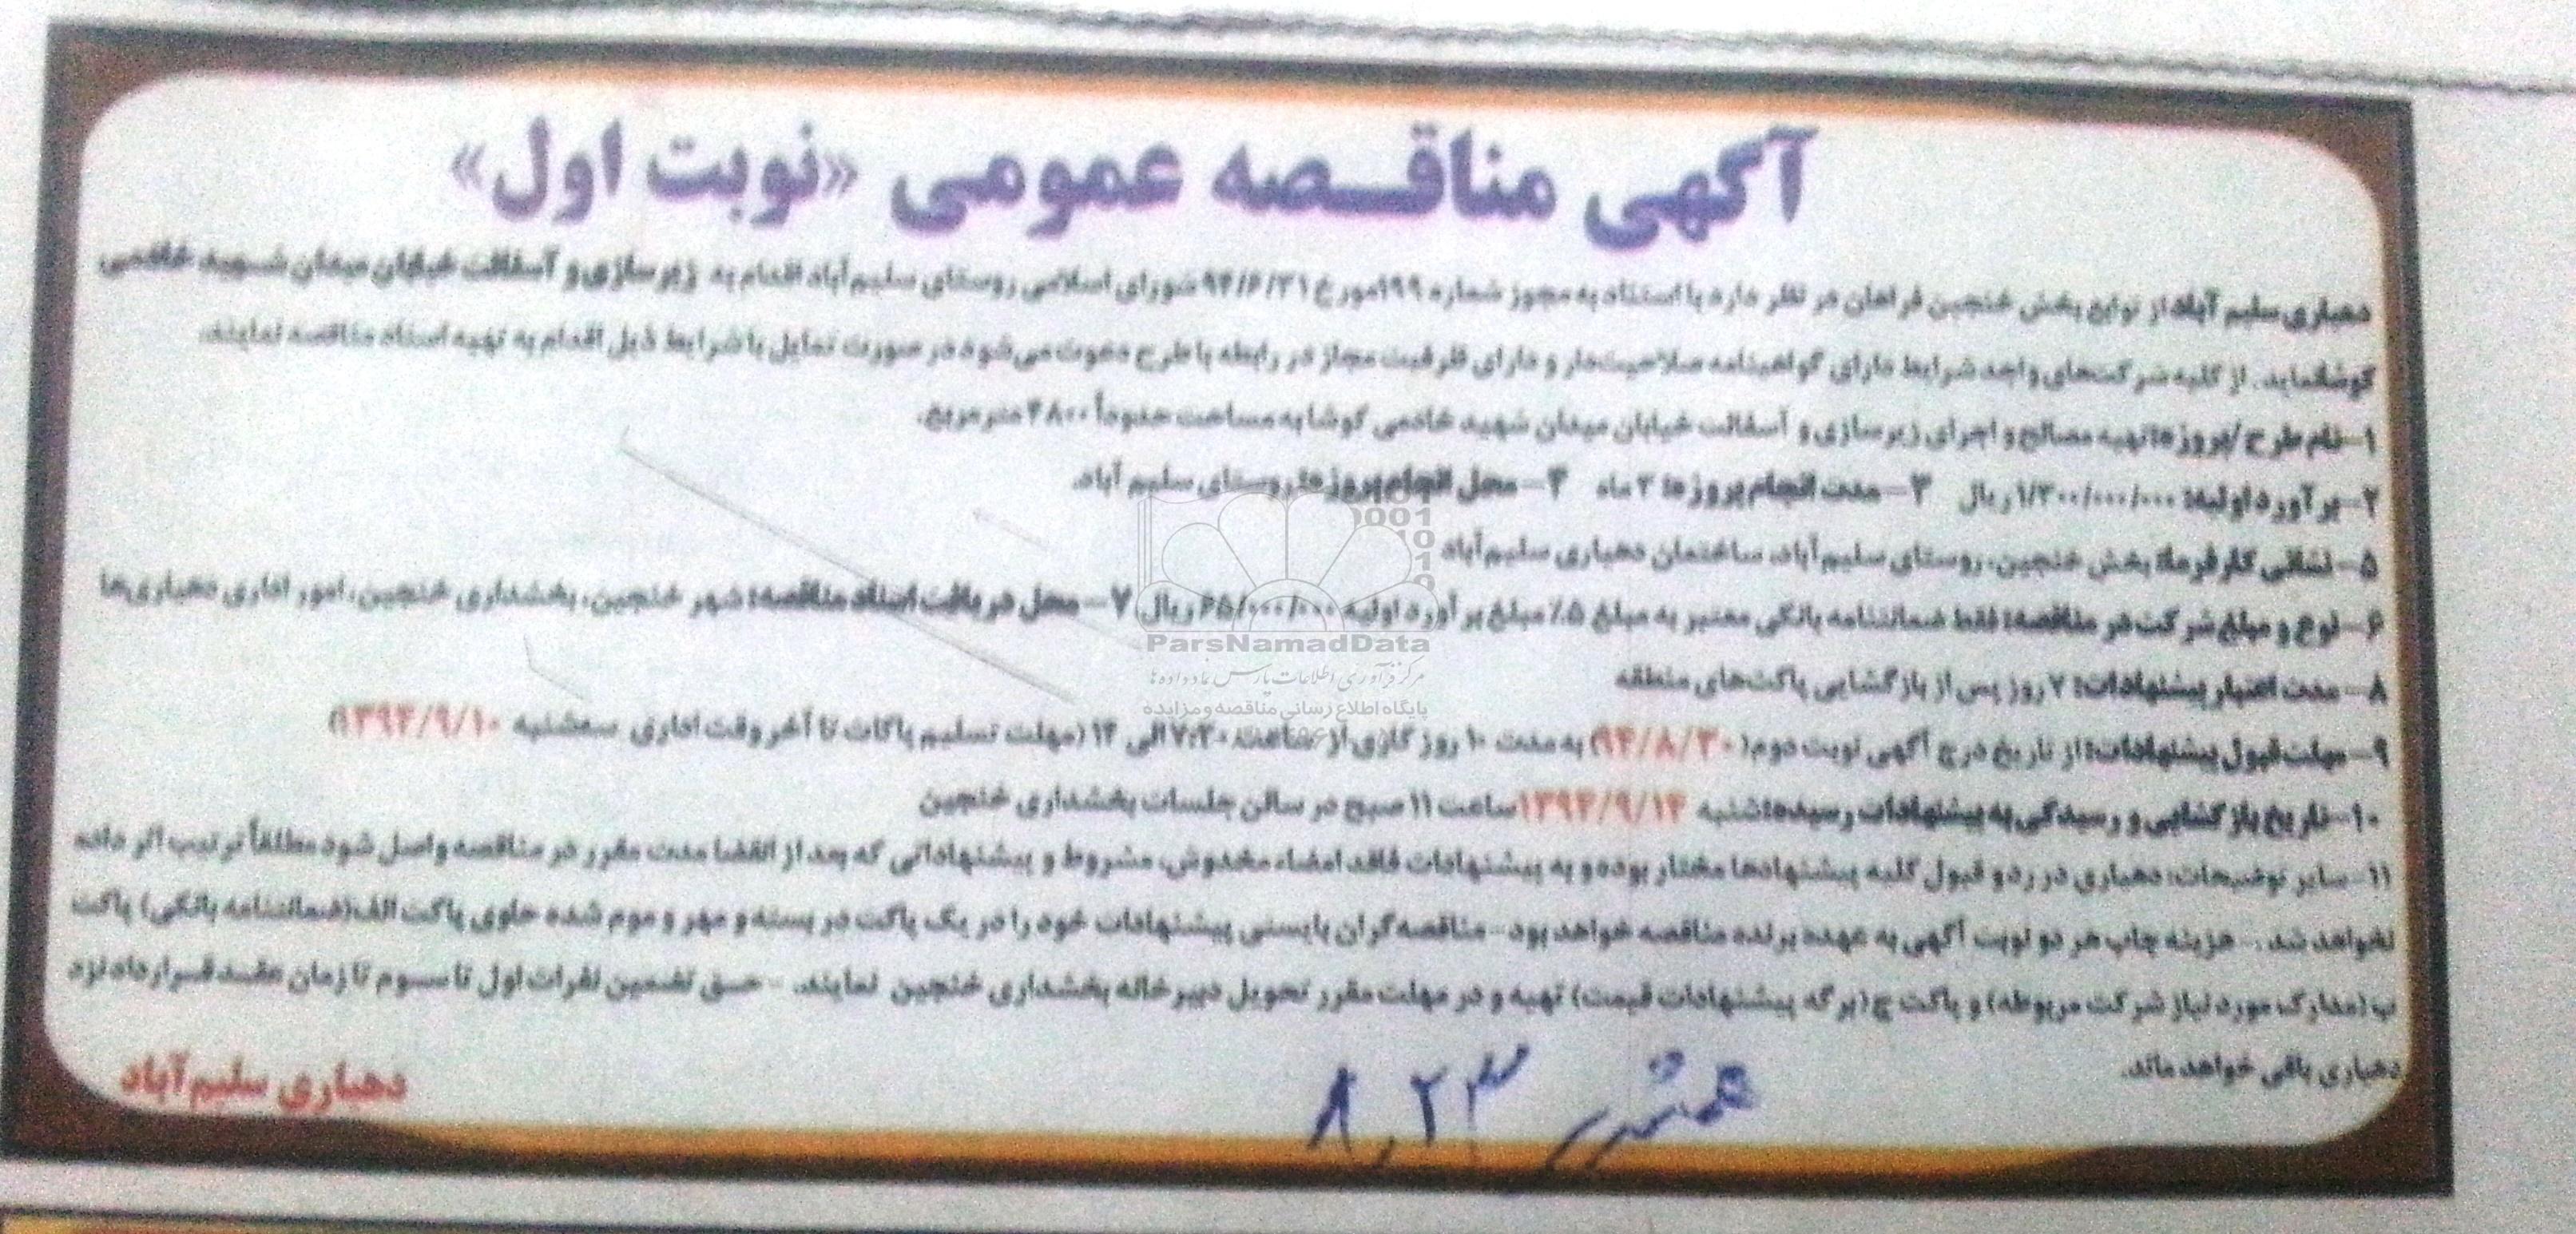 آگهی مناقصه عمومی «نوبت اول»
دهیاری سلیم آباد از توابع بخش خنجین فراهان در نظر دارد با استناد به مجوز شماره ۱۹۹مورخ ۹۴/۶/۳۱ شورای اسلامی روستای سلیم آباد اقدام به زیرسازی و آسفالت خیابان میدان شهید خادمی
گوشا نماید. از کلیه شرکت‌های واجد شرایط دارای گواهینامه صلاحیت‌دار و دارای ظرفیت مجاز در رابطه با طرح دعوت می‌شود در صورت تمایل با شرایط ذیل اقدام به تهیه اسناد مناقصه نمایند.
۱-نام طرح/پروژه: تهیه مصالح و اجرای زیرسازی و آسفالت خیابان میدان شهید خادمی گوشا به مساحت حدوداً ۴۸۰۰ متر مربع.
۲-برآورد اولیه: ۱/۳۰۰/۰۰۰/۰۰۰ ریال ۳-مدت انجام پروژه: ۲ ماه ۴-محل انجام پروژه: روستای سلیم آباد.
۵-نشانی کارفرما: بخش خنجین، روستای سلیم‌آباد، ساختمان دهیاری سلیم‌آباد
۶-نوع و مبلغ شرکت در مناقصه: فقط ضمانتنامه بانکی معتبر به مبلغ ۵٪ مبلغ برآورد اولیه ۶۵/۰۰۰/۰۰۰ ریال ۷-محل دریافت اسناد مناقصه: شهر خنجین، بخشداری خنجین، امور اداری دهیاری‌ها
۸-مدت اعتبار پیشنهادات: ۷ روز پس از بازگشایی پاکت‌های مناقصه
۹-مهلت قبول پیشنهادات: از تاریخ درج آگهی نوبت دوم(۹۴/۸/۳۰) به مدت ۱۰ روز کاری از ساعت ۷:۳۰ الی ۱۴ (مهلت تسلیم پاکات تا آخر وقت اداری سه‌شنبه ۱۳۹۴/۹/۱۰)
۱۰-تاریخ بازگشایی و رسیدگی به پیشنهادات رسیده: شنبه ۱۳۹۴/۹/۱۴ ساعت ۱۱ صبح در سالن جلسات بخشداری خنجین
۱۱-سایر توضیحات: دهیاری در رد و قبول کلیه پیشنهادها مختار بوده و به پیشنهادات فاقد امضاء مخدوش، مشروط و پیشنهاداتی که بعد از انقضا مدت مقرر در مناقصه واصل شود مطلقاً ترتیب اثر داده
نخواهد شد. -هزینه چاپ هر دو نوبت آگهی به عهده برنده مناقصه خواهد بود-مناقصه‌گران بایستی پیشنهادات خود را در یک پاکت در بسته و مهر و موم شده حاوی پاکت الف(ضمانتنامه بانکی) پاکت
ب (مدارک مورد نیاز شرکت مربوطه) و پاکت ج (برگه پیشنهادات قیمت) تهیه و در مهلت مقرر تحویل دبیرخانه بخشداری خنجین نمایند. -حق تضمین نفرات اول تا سوم تا زمان عقد قرارداد نزد
دهیاری باقی خواهد ماند.
دهیاری سلیم‌آباد
همشهری ۸،۲۳
ParsNamadData
مرکز فرآوری اطلاعات پارس نماد داده ها
پایگاه اطلاع رسانی مناقصه و مزایده